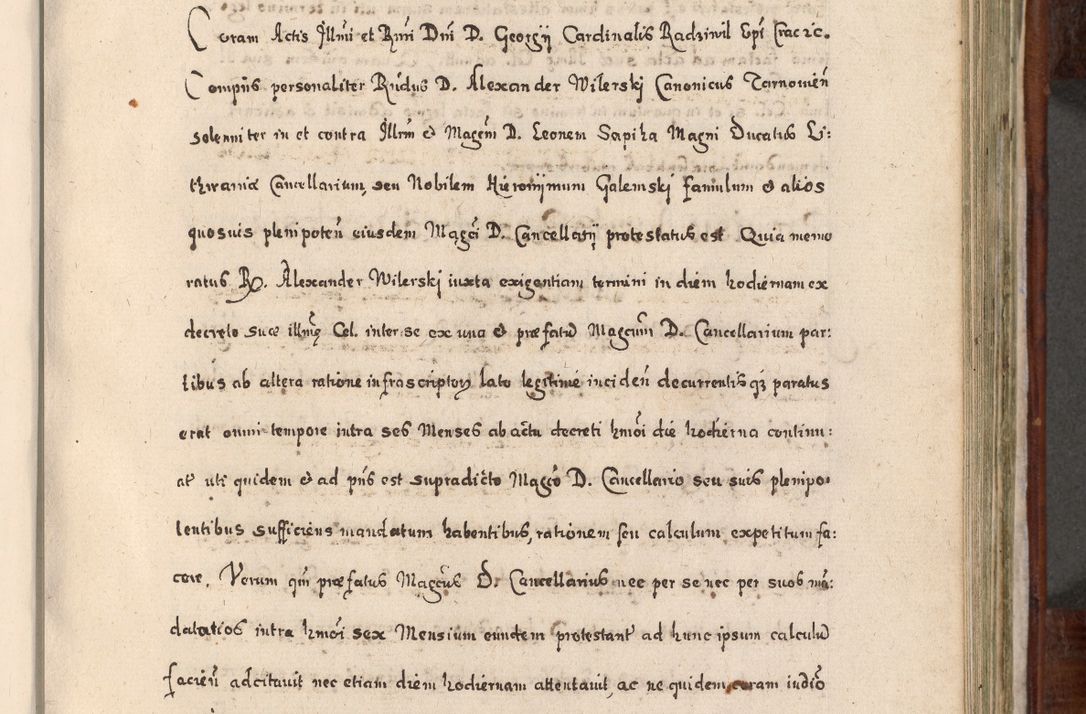 Coram Actis Illmi et Rmi Dni D. Georgij Cardinalis Radziwil Epi Crac &c.
Compns personaliter Rndus D. Alexander Wilerskj Canonicus Tarnowien
solenniter in et contra Illrm & Magcm D. Leonem Sapiha Magni Ducatus Li:
thwaniæ Cancellarium, seu Nobilem Hieronijmum Galemskj famulum & alios
quosuis plenipoten eiusdem Magci D. Cancellarij protestatus est Quia memo
ratus R. Alexander Wilerskj iuxta exigentiam termini in diem hodiernam ex
decreto suæ illmę Cel. inter se ex una & præfatū Magcum D. Cancellarium par:
tibus ab altera ratione infrascriptory lato legitime inciden decurrentisq3 paratus
erat omni tempore intra ses Menses ab actu decreti hmoi die hodierna continu:
at uti quidem & ad pns est supradicto Magco D. Cancellario seu suis plenipo=
tentibus sufficiens mandatum habentibus, rationem seu calculum expetitum fa:
cere. Verum qm præfatus Magcus D. Cancellarius nec per se nec per suos mā:
datatios intra hmoi sex Mensium eundem protestant ad hunc ipsum calculū
facien adcitauit nec etiam diem hodiernam attentauit, ac ne quidem coram iudio